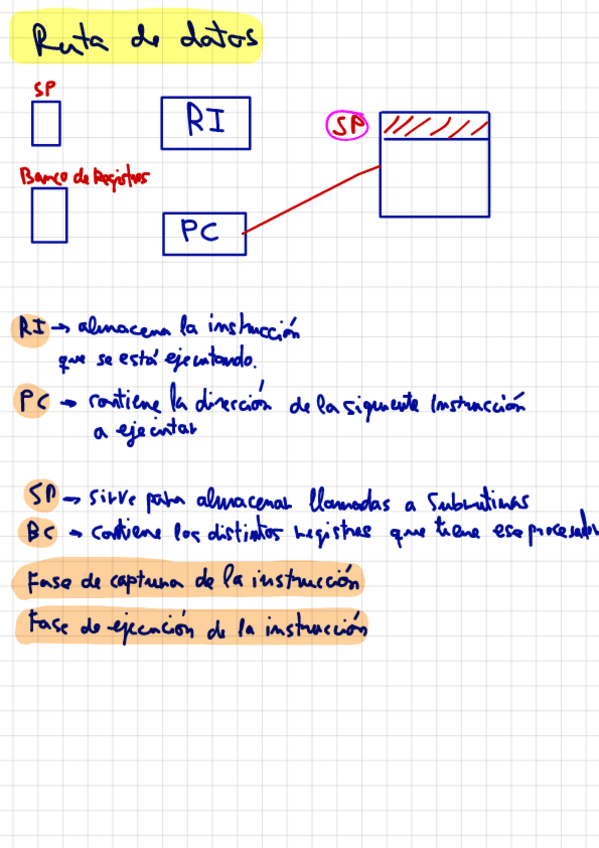 Ruta de datos
SP
RI
SP
Banco de Registros
PC
RI → almacena la instrucción
que se está ejecutando.
PC → contiene la dirección de la siguiente instrucción
a ejecutar
SP → sirve para almacenar llamadas a subrutinas
BC → contiene los distintos registros que tiene ese procesador
Fase de captura de la instrucción
Fase de ejecución de la instrucción